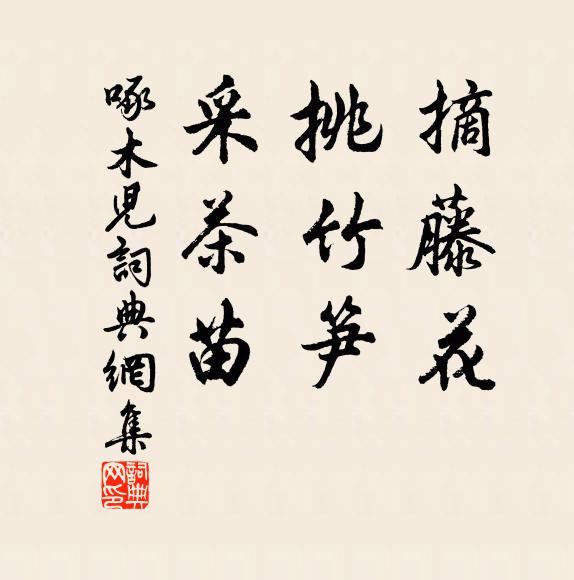 摘藤花
挑竹笋
采茶苗
啄木児詞典網集
詞典网印